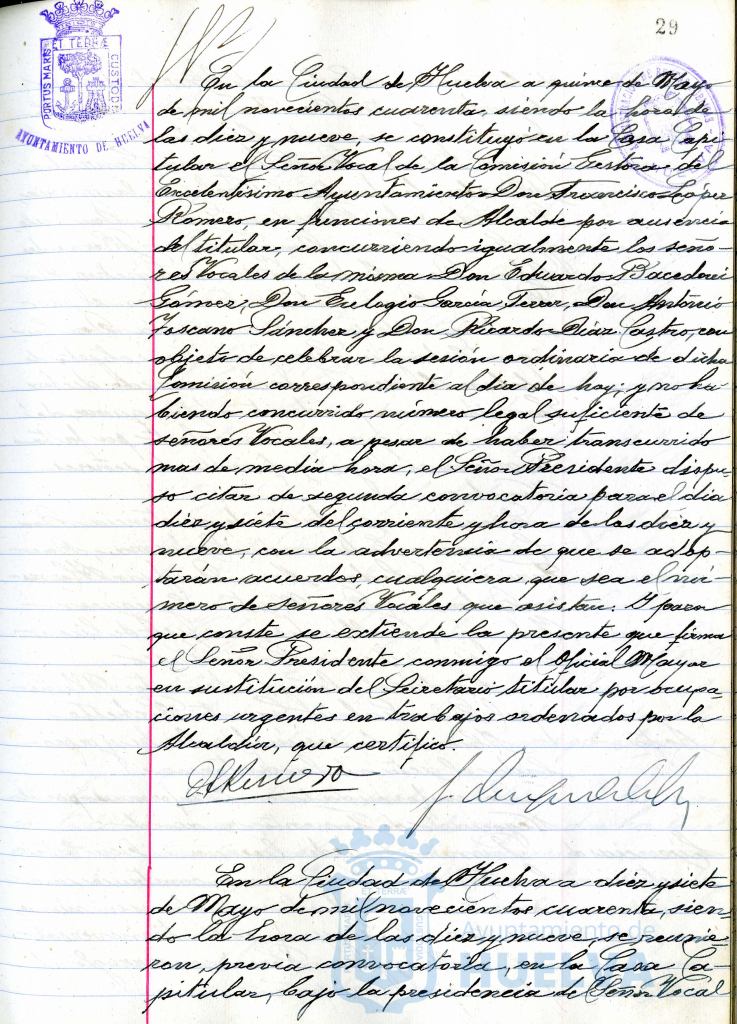 29
PORTUS MARIS ET TERRÆ CUSTODIA
AYUNTAMIENTO DE HUELVA
En la Ciudad de Huelva a quince de Mayo
de mil novecientos cuarenta, siendo la hora de
las diez y nueve, se constituyó en la Casa Capi-
tular el Señor Vocal de la Comisión Gestora del
Excelentísimo Ayuntamiento Don Francisco López
Romero, en funciones de Alcalde por ausencia
del titular, concurriendo igualmente los seño-
res Vocales de la misma Don Eduardo
Gómez, Don Eulogio García Ferrer, Don Antonio
Toscano Sánchez y Don Ricardo Díaz Castro, con
objeto de celebrar la sesión ordinaria de dicha
Comisión correspondiente al día de hoy; y no ha-
biendo concurrido número legal suficiente de
señores Vocales, a pesar de haber transcurrido
mas de media hora, el Señor Presidente dispu-
so citar de segunda convocatoria para el dia
diez y siete del corriente y hora de las diez y
nueve, con la advertencia de que se adop-
tarán acuerdos, cualquiera que sea el nú-
mero de señores Vocales que asistan. Y para
que conste se extiende la presente que firma
el Señor Presidente conmigo el Oficial Mayor
en sustitución del Secretario titular por ocupa-
ciones urgentes en trabajos ordenados por la
Alcaldía, que certifico.
En la Ciudad de Huelva a diez y siete
de Mayo de mil novecientos cuarenta, sien-
do la hora de las diez y nueve, se reunie-
ron, previa convocatoria, en la Casa Ca-
pitular, bajo la presidencia de Señor Vocal
Ayuntamiento de
HUELVA